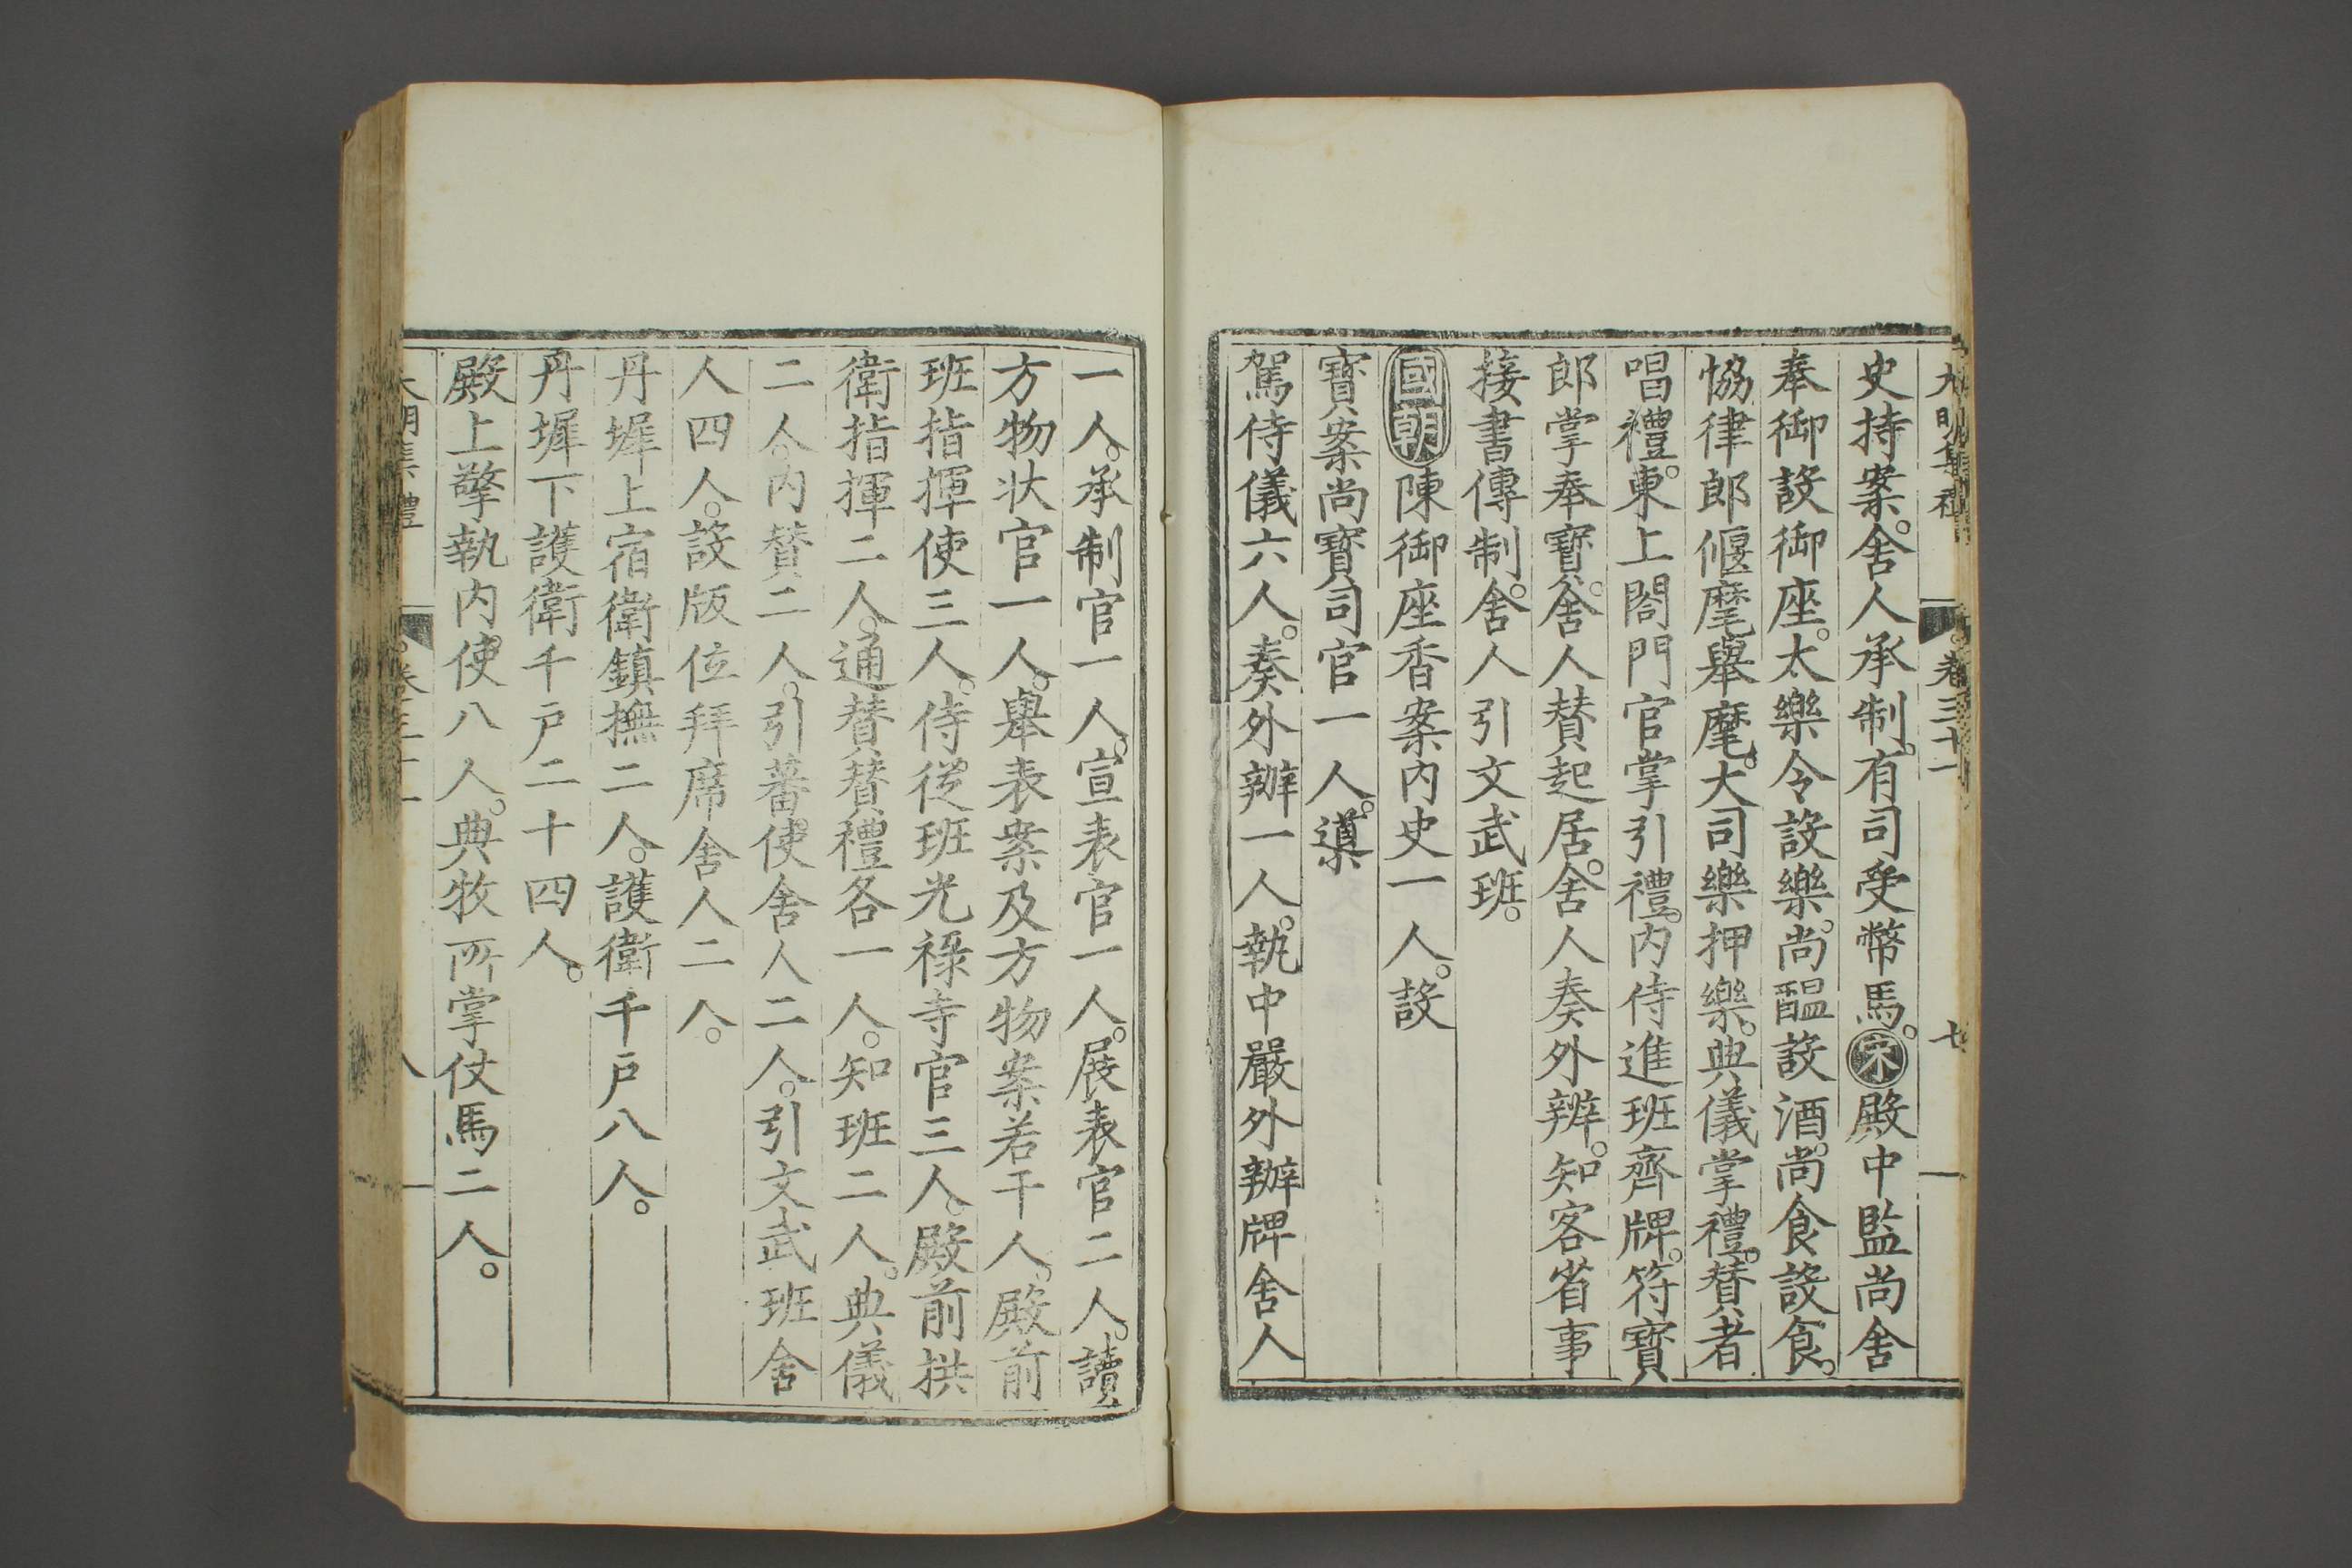 大明集禮 卷三十一 七
史持案。舍人承制。有司受幣馬。宋殿中監尚舍
奉御設御座。太樂令設樂。尚醞設酒。尚食設食。
恊律郎偃麾舉麾。大司樂押樂。典儀掌禮。賛者
唱禮。東上閤門官掌引禮。内侍進班齊牌。符寳
郎掌奉寳。舍人賛起居。舍人奏外辦。知客省事
接書傳制。舍人引文武班。
國朝陳御座香案内史一人。設
寳案尚寳司官一人。導
駕侍儀六人。奏外辦一人。執中嚴外辦牌舍人
一人。承制官一人。宣表官一人。展表官二人。讀
方物狀官一人。舉表案及方物案若干人。殿前
班指揮使三人。侍從班光祿寺官三人。殿前拱
衛指揮二人。通賛賛禮各一人。知班二人。典儀
二人。内賛二人。引蕃使舍人二人。引文武班舍
人四人。設版位拜席舍人二人。
丹墀上宿衛鎮撫二人。護衛千戸八人。
丹墀下護衛千戸二十四人。
殿上擎執内使八人。典牧所掌仗馬二人。
大明集禮 卷三十一 八